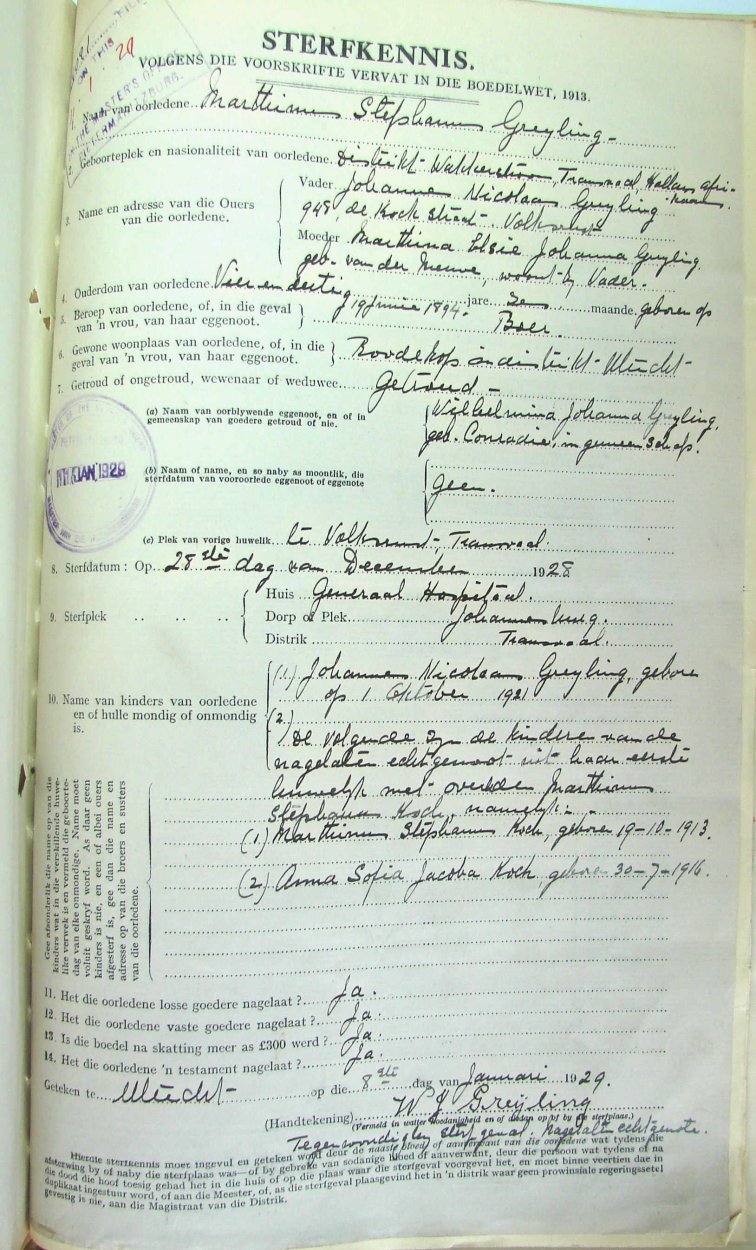 STERFKENNIS.
VOLGENS DIE VOORSKRIFTE VERVAT IN DIE BOEDELWET, 1913.
1. Naam van oorledene. Marthinus Stephanus Greyling
2. Geboorteplek en nasionaliteit van oorledene. Distrikt Wakkerstroom, Transvaal, Hollans afri-
kaans.
3. Name en adresse van die Ouers van die oorledene.
Vader Johannes Nicolaas Greyling
948, de Kock straat Volksrust
Moeder Marthina Elsie Johanna Greyling
geb. van der Merwe, woont by Vader.
4. Ouderdom van oorledene. Vier en dertig jare maande. geboren op
19 Junie 1894.
5. Beroep van oorledene, of, in die geval van 'n vrou, van haar eggenoot. Boer.
6. Gewone woonplaas van oorledene, of, in die geval van 'n vrou, van haar eggenoot. Roodekop in distrikt Utrecht
7. Getroud of ongetroud, wewenaar of weduwee. Getroud
(a) Naam van oorblywende eggenoot, en of in gemeenskap van goedere getroud of nie.
Wilhelmina Johanna Greyling,
geb. Conradie, in gemeenschap.
(b) Naam of name, en so naby as moontlik, die sterfdatum van vooroorlede eggenoot of eggenote
Geen.
(c) Plek van vorige huwelik te Volksrust, Transvaal.
8. Sterfdatum: Op 28ste dag van December 1928
9. Sterfplek
Huis Generaal Hospitaal.
Dorp of Plek Johannesburg.
Distrik Transvaal.
10. Name van kinders van oorledene en of hulle mondig of onmondig is.
(1) Johannes Nicolaas Greyling, gebore
op 1 Oktober 1921
(2)
De volgende zyn de kinderen van de
nagelaten echtgenoot uit haar eerste
huwelyk met overlede Marthinus
Stephanus Koch, namelyk:-
(1) Marthinus Stephanus Koch, geboren 19-10-1913.
(2) Anna Sofia Jacoba Koch, geboren 30-7-1916.
Gee afsonderlik die name op van die
kinders wat in die verskillende huwe-
like verwek is en vermeld die geboorte-
dag van elke onmondige. Name moet
voluit geskryf word. As daar geen
kinders is nie, en een of albei ouers
afgesterf is, gee dan die name en
adresse op van die broers en susters
van die oorledene.
11. Het die oorledene losse goedere nagelaat? Ja.
12. Het die oorledene vaste goedere nagelaat? Ja.
13. Is die boedel na skatting meer as £300 werd? Ja.
14. Het die oorledene 'n testament nagelaat? Ja.
Geteken te Utrecht op die 8ste dag van Januari 1929.
(Handtekening) W J Greyling
(Vermeld in watter hoedanigheid en of op of by die sterfplaas.)
nagelate echtgenote.
Hierdie sterfkennis moet ingevul en geteken word deur die naaste bloed- of aanverwant van die oorledene wat tydens die
afsterwing by of naby die sterfplaas was—of by gebreke van sodanige bloed of aanverwant, deur die persoon wat tydens of na
die dood die hoof toesig gehad het in die huis of op die plaas waar die sterfgeval voorgeval het, en moet binne veertien dae in
duplikaat ingestuur word, of aan die Meester, of, as die sterfgeval plaasgevind het in 'n distrik waar geen prowinsiale regeringssetel
gevestig is nie, aan die Magistraat van die Distrik.
JAN 1929